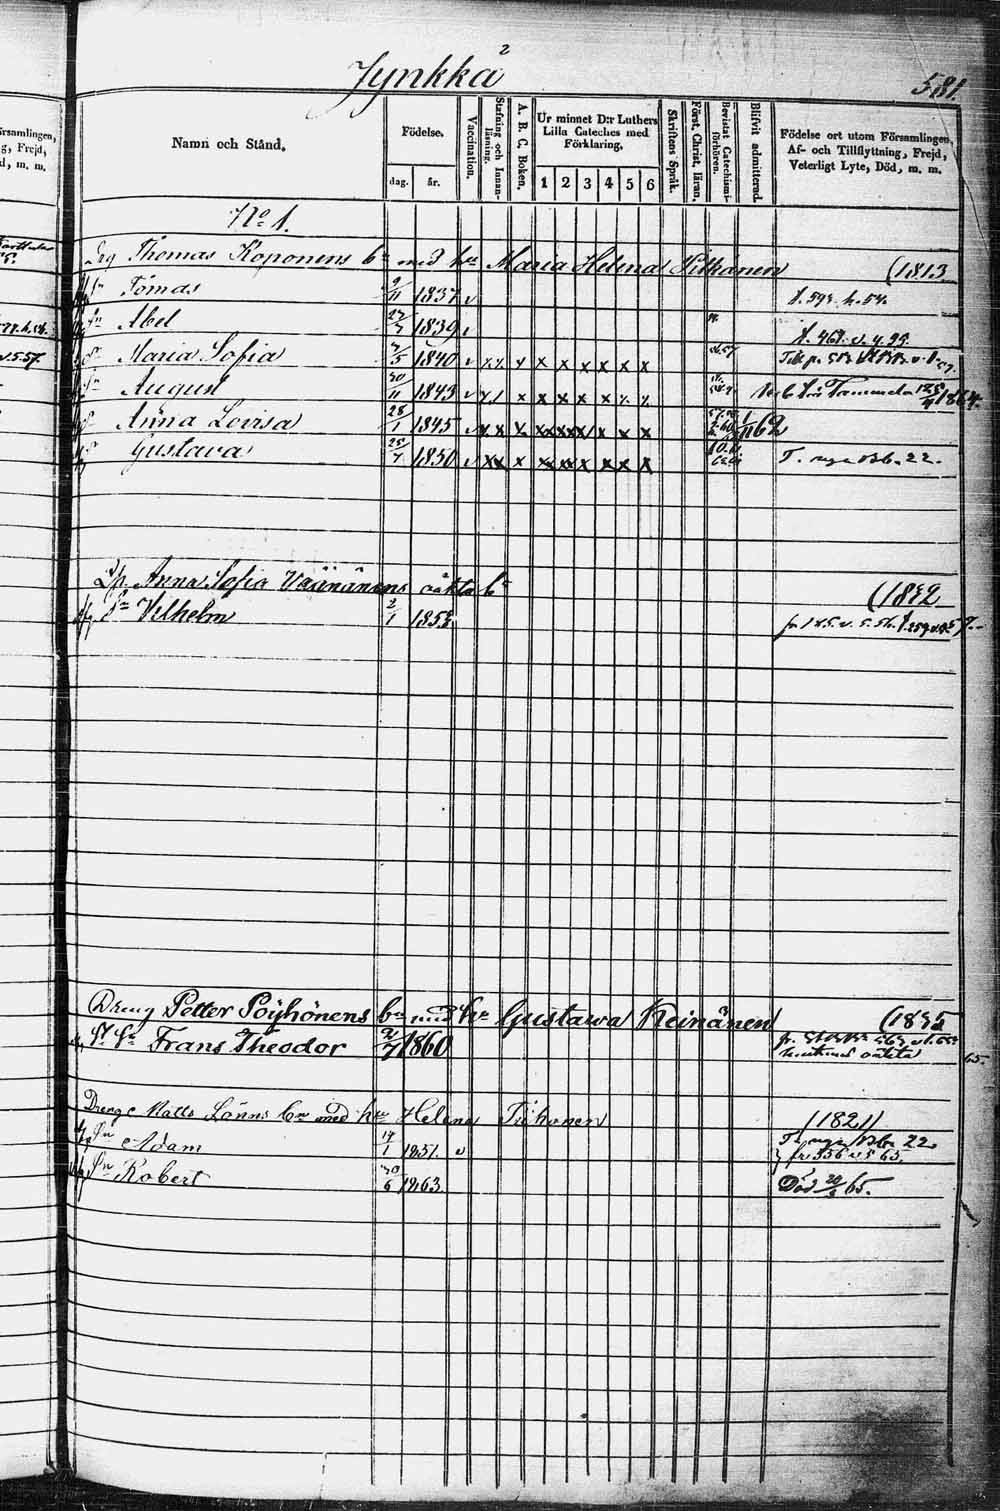 Jynkkä 2
581.
Namn och Stånd.
Födelse.
dag.
år.
Vaccination.
Stafning och Innanläsning.
A. B. C. Boken.
Ur minnet D:r Luthers
Lilla Cateches med
Förklaring.
1 2 3 4 5 6
Skriftens Språk.
Först. Christ. läran.
Bevistat Catechismiförhören.
Blifvit admitterad.
Födelse ort utom Församlingen,
Af- och Tillflyttning, Frejd,
Veterligt Lyte, Död, m. m.
No 1.
Thomas Koponens bn med hu Maria Helena Pitkänen (1813
Sn Tomas 9/11 1837 v
Sn Abel 27/7 1839
Dr Maria Sofia 7/5 1840 v x x x x x x
Sn August 30/11 1843 v x x x x
Dr Anna Lovisa 28/1 1845 v x x x x x x 1/11 62
Dr Gustava 25/7 1850 v x x x x x x x T. nya Bb. 22.
Anna Sofia Väänänens oäkta br (1832
Sn Vilhelm 2/1 1853
Dreng Petter Pöyhönens bn med hu Gustava Keinänen (1835
Sn Frans Theodor 2/7 1860
65.
Drenge Matts Lönns bn med hu Helena Tiihonen (1821)
Sn Adam 14/1 1851. v T. nya Bb 22
fr 356 v 5 65.
Sn Robert 30/6 1863. Död 65.